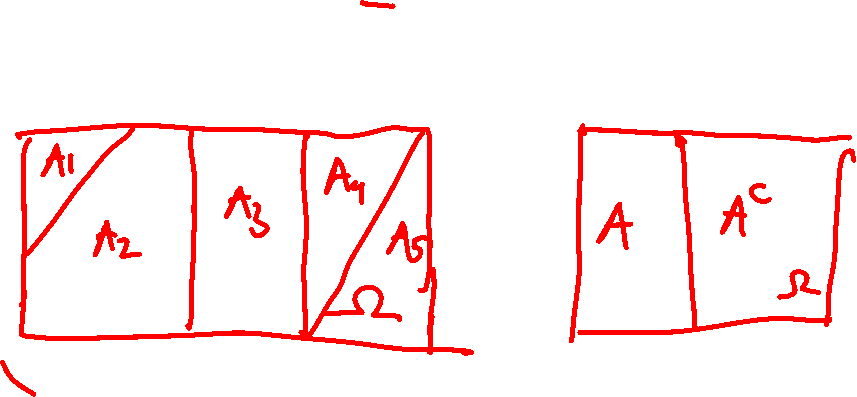 A1 A2 A3 A4 A5 Ω
A Aᶜ Ω